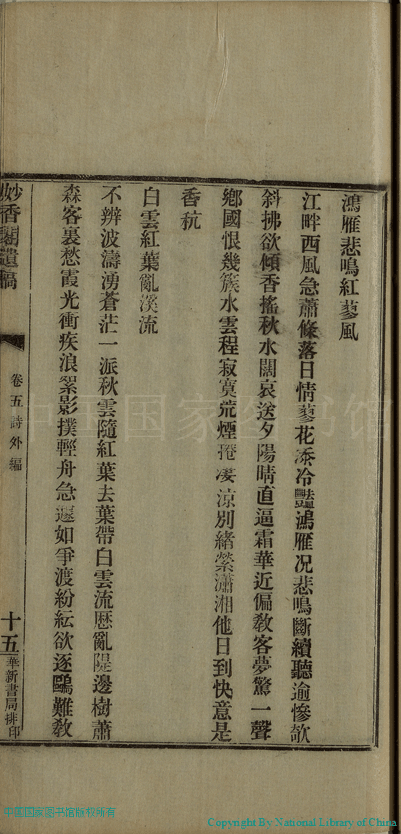 鴻雁悲鳴紅蓼風
江畔西風急蕭條落日情蓼花添冷豔鴻雁况悲鳴斷續聽逾慘欹
斜拂欲傾香搖秋水闊哀送夕陽晴直逼霜華近偏敎客夢驚一聲
鄕國恨幾簇水雲程寂寞荒煙捲凄涼別緖縈瀟湘他日到快意是
香秔
白雲紅葉亂溪流
不辨波濤湧蒼茫一派秋雲隨紅葉去葉帶白雲流歷亂隄邊樹蕭
森客裏愁霞光衝疾浪絮影撲輕舟急遽如爭渡紛紜欲逐鷗難敎
妙香閣遺稿
卷五詩外編
十五
華新書局排印
中国国家图书馆版权所有
Copyright By National Library of China
中国国家图书馆